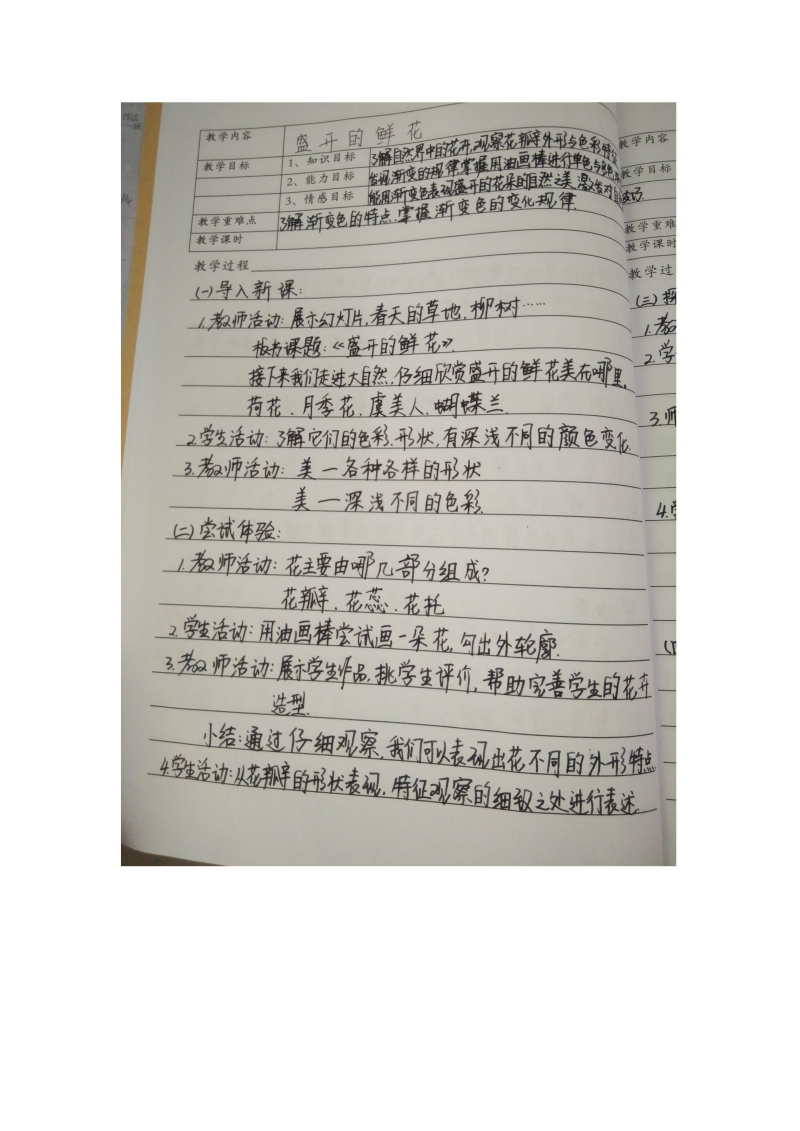 教学内容 盛开的鲜花
教学目标 1、知识目标 了解自然界中的花开,观察花瓣外形与色彩特
2、能力目标 发现渐变的规律,掌握用油画棒进行单色与
3、情感目标 能用渐变色表现盛开的花朵的自然之美,激发对
教学重难点 了解渐变色的特点.掌握渐变色的变化规律.
教学课时
教学过程
(一)导入新课:
1.教师活动:展示幻灯片,春天的草地,柳树……
板书课题:《盛开的鲜花》.
接下来我们走进大自然,仔细欣赏盛开的鲜花美在哪里.
荷花.月季花.虞美人.蝴蝶兰.
2.学生活动:了解它们的色彩.形状,有深浅不同的颜色变化.
3.教师活动:美一各种各样的形状
美一深浅不同的色彩.
(二)尝试体验:
1.教师活动:花主要由哪几部分组成?
花瓣.花蕊.花托
2.学生活动:用油画棒尝试画一朵花,勾出外轮廓.
3.教师活动:展示学生作品,挑学生评价,帮助完善学生的花卉
造型.
小结:通过仔细观察,我们可以表现出花不同的外形特点
4.学生活动:从花瓣的形状表现,特征观察的细致之处进行表述.
教学内容
教学目标
教学重难
教学课时
教学过
(三)
1.教
2.学
3.师
4.学